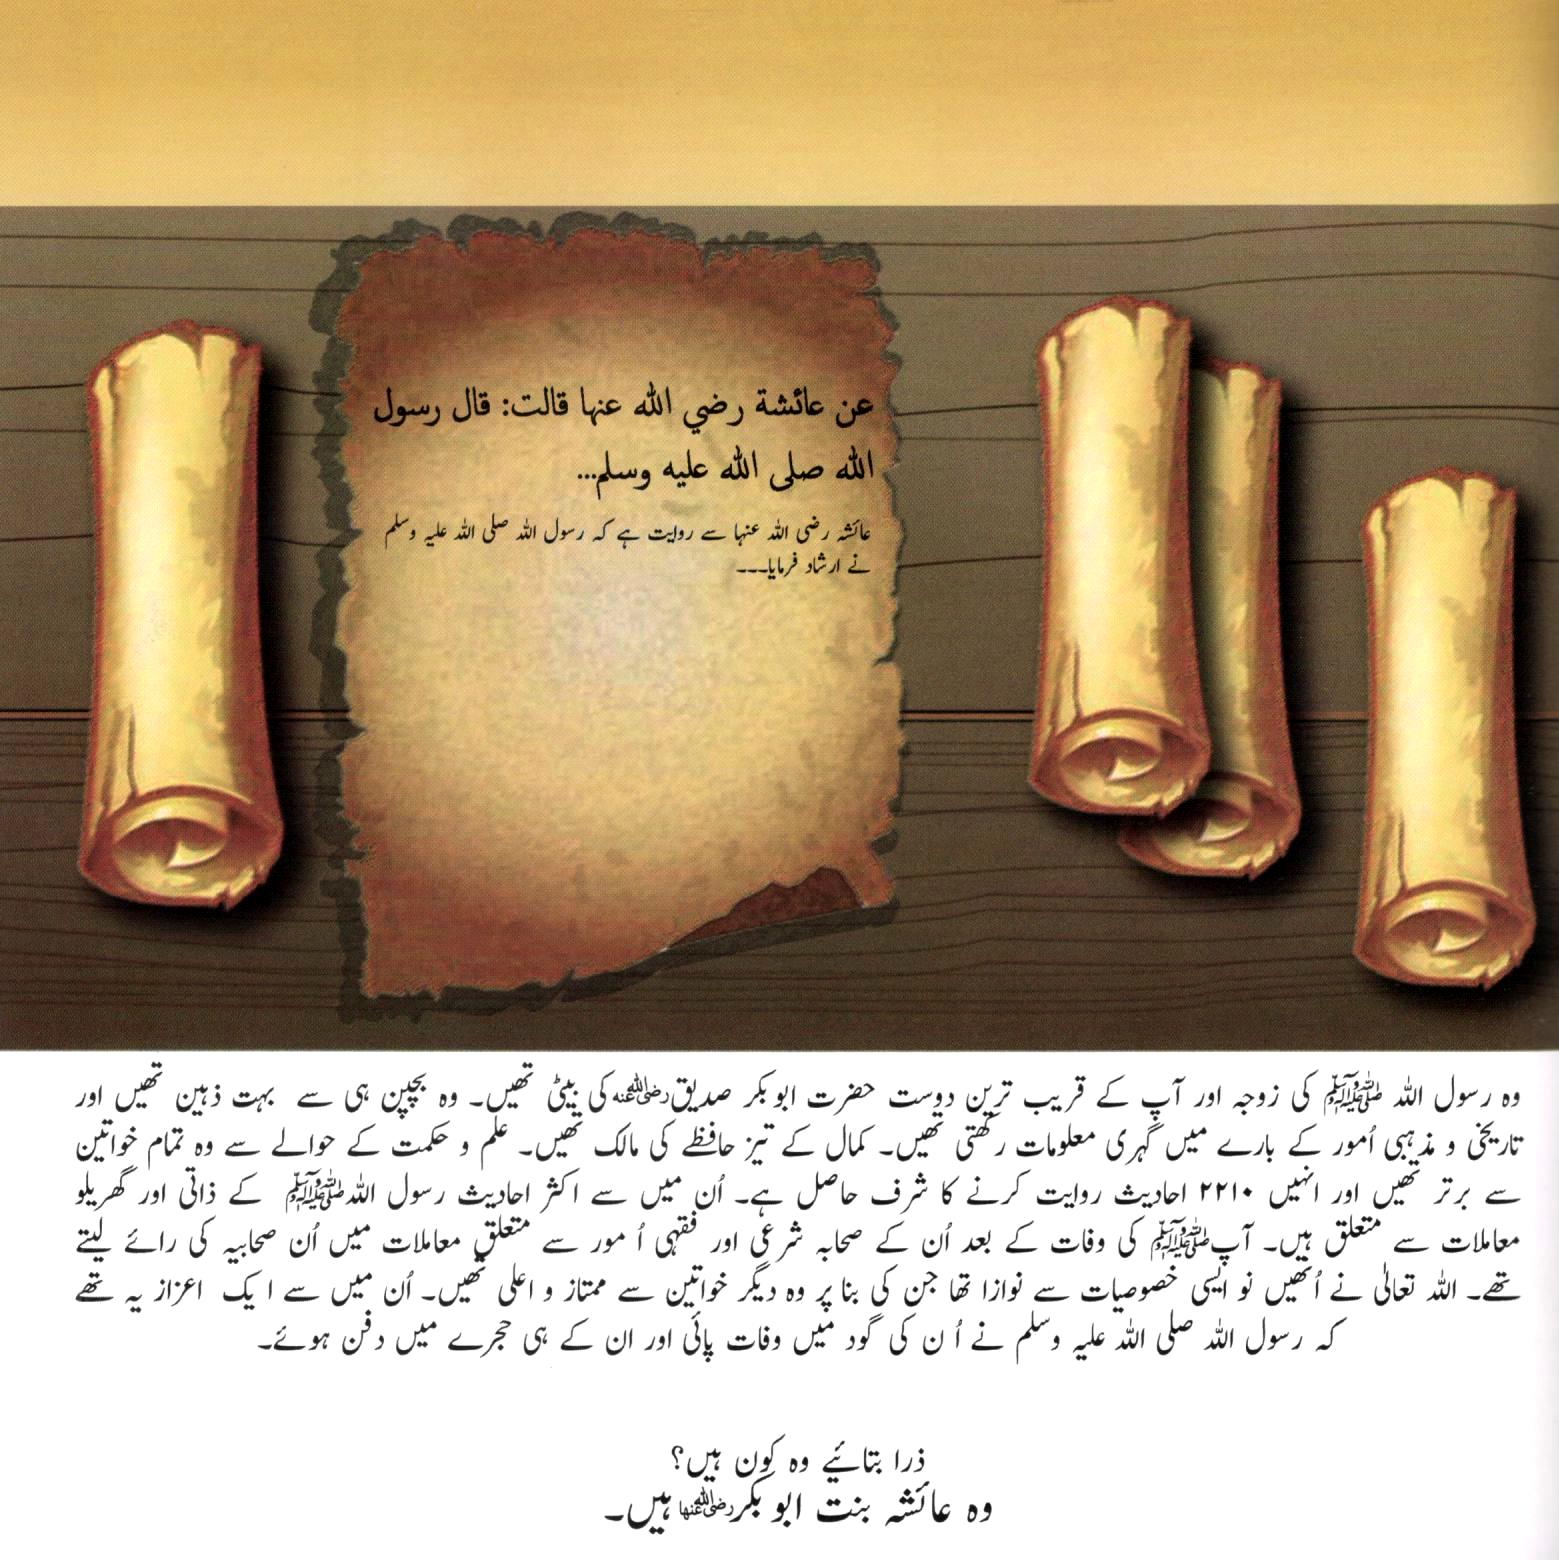 عن عائشة رضي الله عنها قالت: قال رسول
الله صلى الله عليه وسلم...
عائشہ رضی اللہ عنہا سے روایت ہے کہ رسول اللہ صلی اللہ علیہ وسلم
نے ارشاد فرمایا۔۔۔
وہ رسول اللہ ﷺ کی زوجہ اور آپ کے قریب ترین دوست حضرت ابوبکر صدیق رضی اللہ عنہ کی بیٹی تھیں۔ وہ بچپن ہی سے بہت ذہین تھیں اور
تاریخی و مذہبی اُمور کے بارے میں گہری معلومات رکھتی تھیں۔ کمال کے تیز حافظے کی مالک تھیں۔ علم و حکمت کے حوالے سے وہ تمام خواتین
سے برتر تھیں اور انہیں ۲۲۱۰ احادیث روایت کرنے کا شرف حاصل ہے۔ اُن میں سے اکثر احادیث رسول اللہ ﷺ کے ذاتی اور گھریلو
معاملات سے متعلق ہیں۔ آپ ﷺ کی وفات کے بعد اُن کے صحابہ شرعی اور فقہی اُ مور سے متعلق معاملات میں اُن صحابیہ کی رائے لیتے
تھے۔ اللہ تعالیٰ نے اُنھیں نو ایسی خصوصیات سے نوازا تھا جن کی بنا پر وہ دیگر خواتین سے ممتاز و اعلی تھیں۔ اُن میں سے ا یک اعزاز یہ تھے
کہ رسول اللہ صلی اللہ علیہ وسلم نے اُ ن کی گود میں وفات پائی اور ان کے ہی حجرے میں دفن ہوئے۔
ذرا بتائیے وہ کون ہیں؟
وہ عائشہ بنت ابو بکر رضی اللہ عنہا ہیں۔